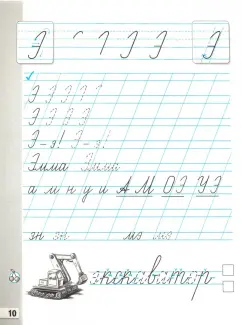 Э Э Э
Э Э Э
Э Э Э Э
Э-э! Э-э!
Эмма Эмма
а м н у и А М О Э У Э
эн эн мэ мэ
экскаватор
10